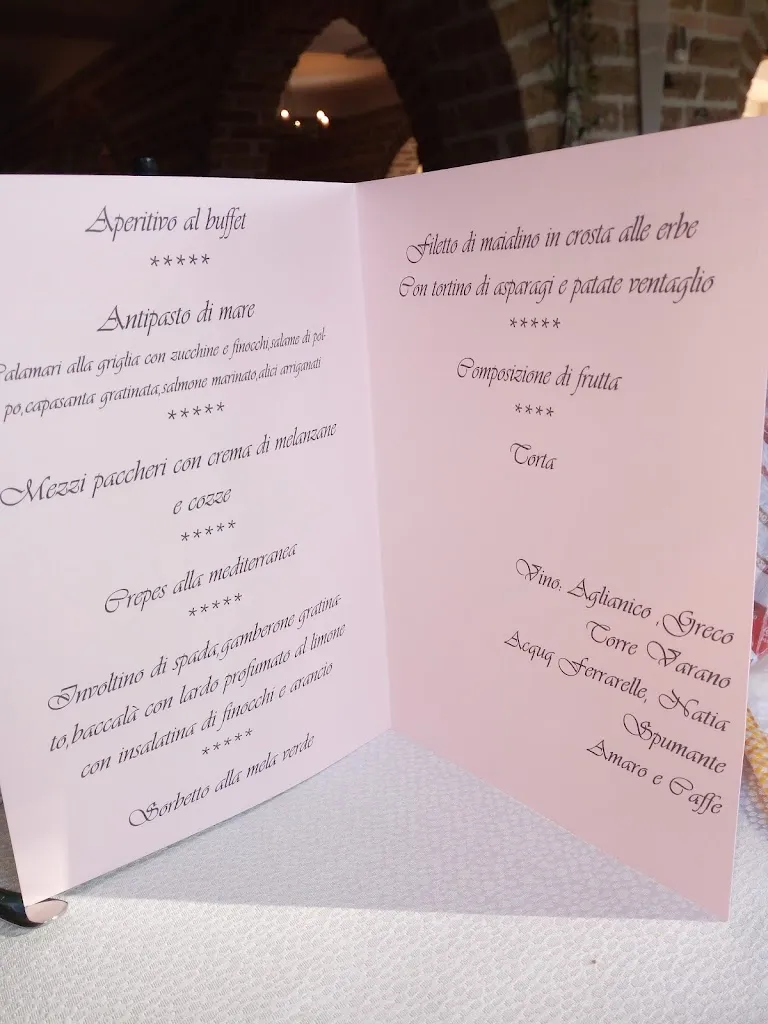 Aperitivo al buffet
*****
Antipasto di mare
Calamari alla griglia con zucchine e finocchi,salame di pol-
po,capasanta gratinata,salmone marinato,alici arriganati
*****
Mezzi paccheri con crema di melanzane
e cozze
*****
Crepes alla mediterranea
*****
Involtino di spada,gamberone gratina-
to,baccalà con lardo profumato al limone
con insalatina di finocchi e arancio
*****
Sorbetto alla mela verde
Filetto di maialino in crosta alle erbe
Con tortino di asparagi e patate ventaglio
*****
Composizione di frutta
****
Torta
Vino: Aglianico ,Greco
Torre Varano
Acqua Ferrarelle, Natia
Spumante
Amaro e Caffe